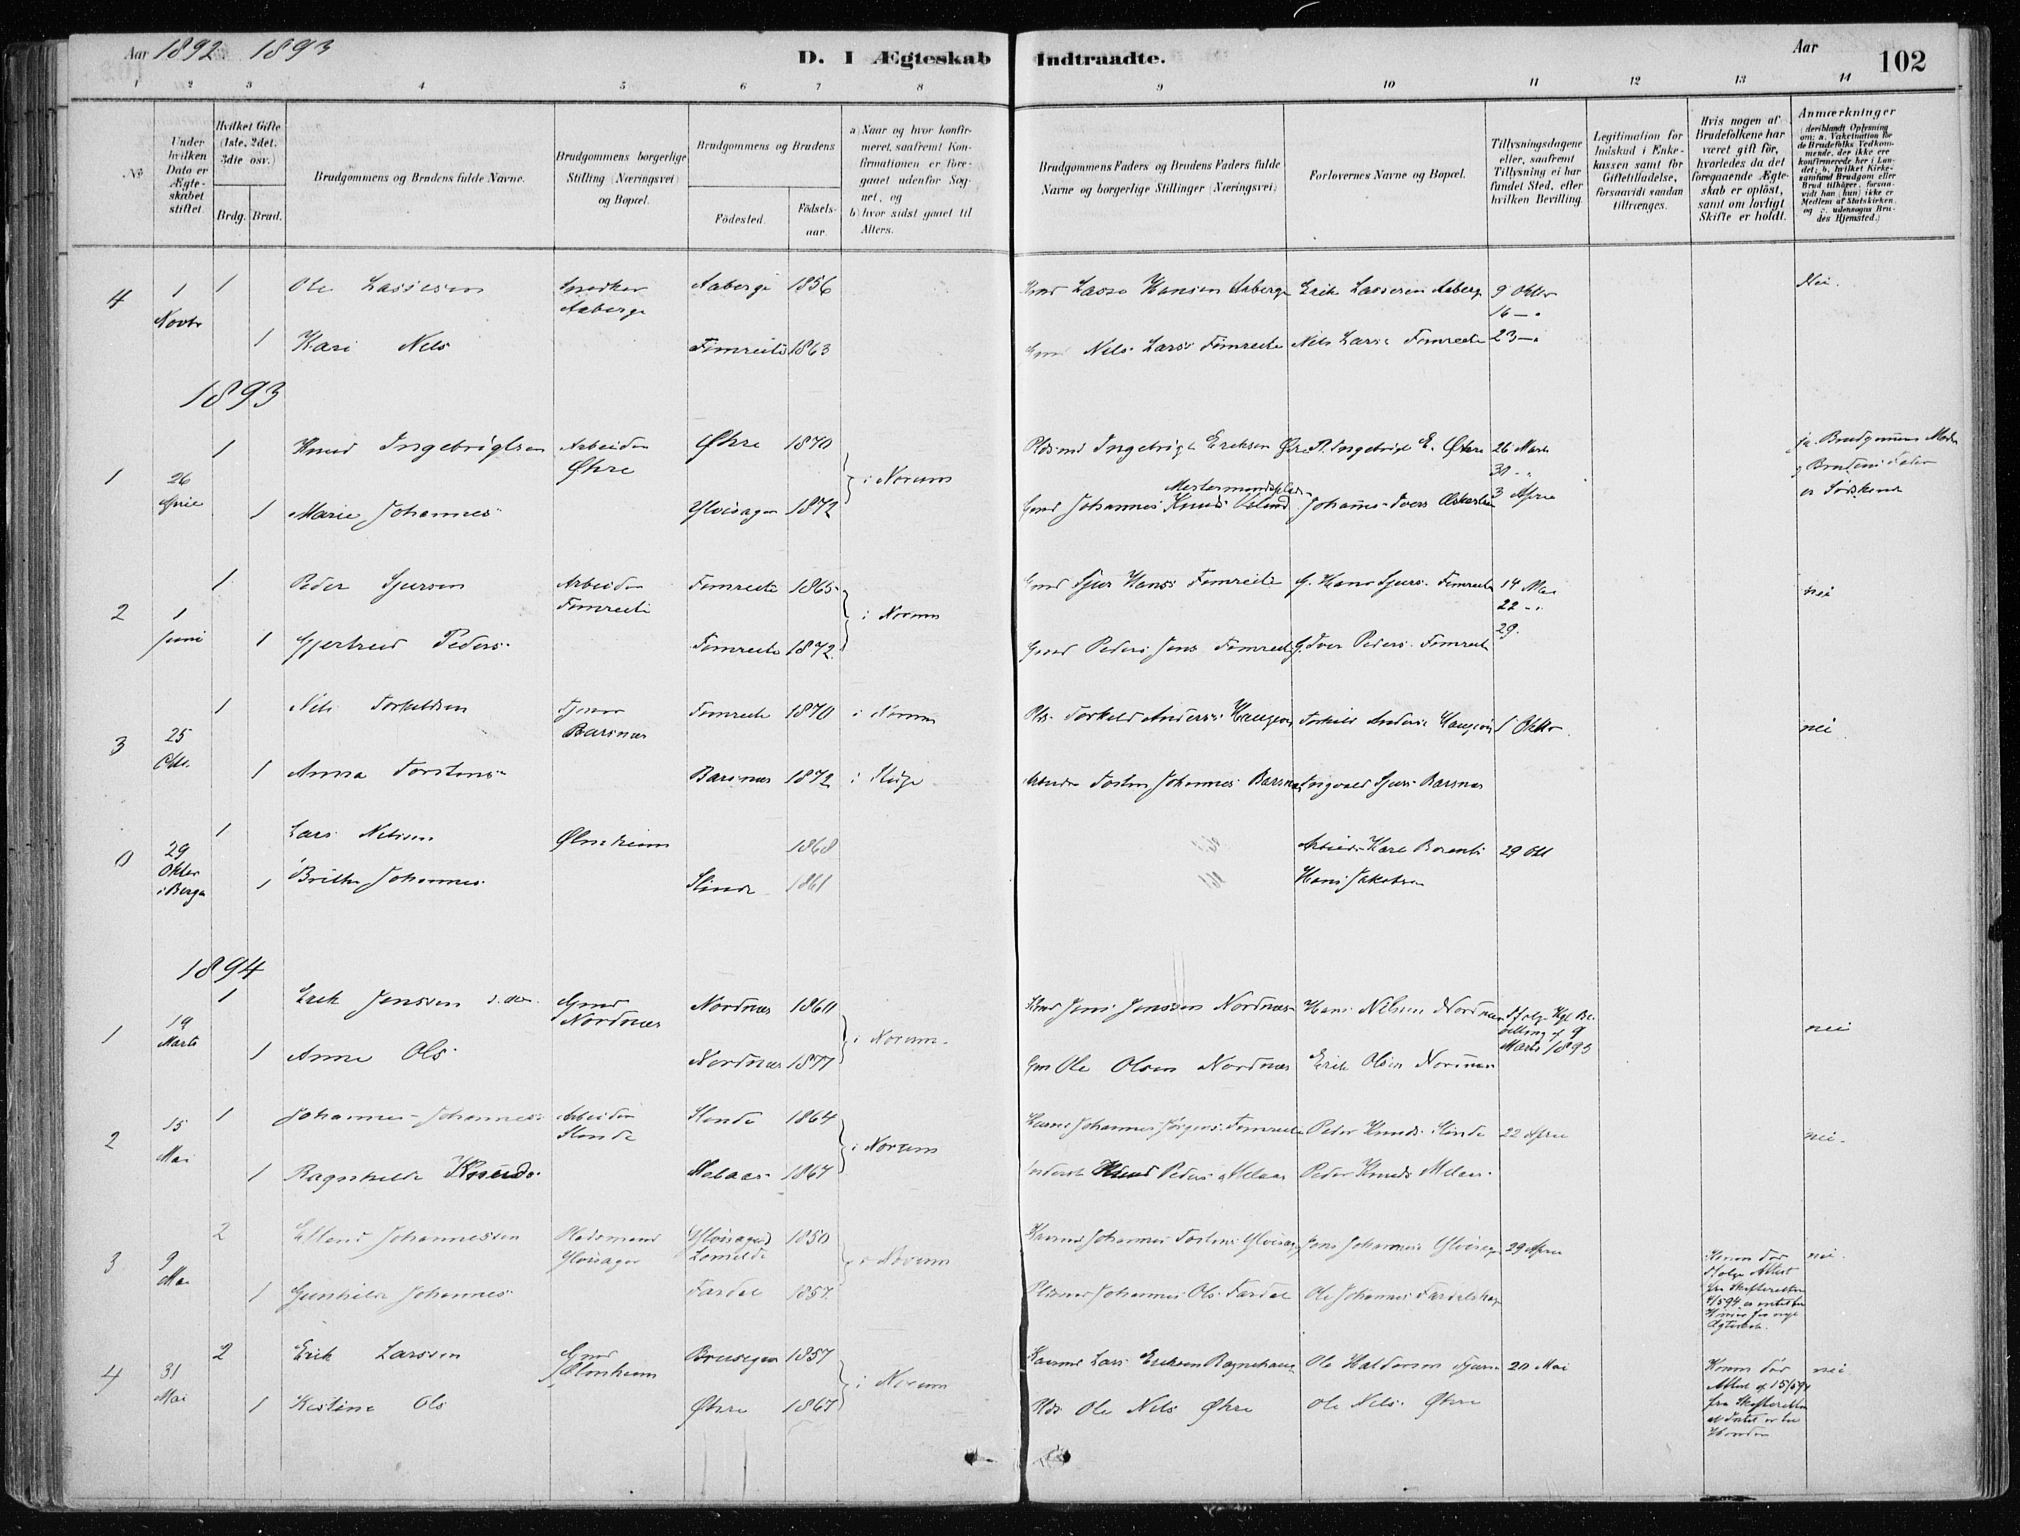 Aar 1892 1893
D. I Ægteskab Indtraadte.
Aar
102
1 2 3 4 5 6 7 8 9 10 11 12 13 14
No
Under hvilken Dato er Ægteskabet stiftet.
Hvilket Gifte (1ste, 2det, 3die osv.)
Brdg. Brud.
Brudgommens og Brudens fulde Navne.
Brudgommens borgerlige Stilling (Næringsvei) og Bopæl.
Brudgommens og Brudens
Fødested.
Fødselsaar.
a) Naar og hvor konfirmeret, saafremt Konfirmationen er foregaaet udenfor Sognet, og
b) hvor sidst gaaet til Alters.
Brudgommens Faders og Brudens Faders fulde Navne og borgerlige Stillinger (Næringsvei)
Forlovernes Navne og Bopæl.
Tillysningsdagene eller, saafremt Tillysning ei har fundet Sted, efter hvilken Bevilling.
Legitimation for Indskud i Enkekassen samt for Giftetilladelse, forsaavidt saadan tiltrænges.
Hvis nogen af Brudefolkene har været gift før, hvorledes da det foregaaende Ægteskab er opløst, samt om lovligt Skifte er holdt.
Anmærkninger
(deriblandt Oplysning om: a. Vakcination for de Brudefolks Vedkommende, der ikke ere konfirmerede her i Landet; b. hvilket Kirkesamfund Brudgom eller Brud tilhører, forsaavidt han (hun) ikke er Medlem af Statskirken, og c. udensogns Brudes Hjemsted.)
4 1 Novbr 1 Ole Lassesen Snedker Aaberge Aaberge 1856 Lasse Hansen Aaberge Erik Lassesen Aaberge 9 Oktbr 16 — 23 — Nei.
1 Kari Nels Fimreite 1863 Nels Larss Fimreite Nels Larss Fimreite
1893
1 26 April 1 Knud Ingebrigtsen Arbeider Øhre Øhre 1870 i Norum Ingebrigt Eriksen Øhre Ingebrigt E. Øhre 26 Marts 3 April ja. Brudgommens Moder og Brudens Fader er Søskende
1 Marie Johannes Ylvisager 1872 Gmd Johannes Knuds Johannes Ivers
2 1 Juni 1 Peder Sjursen Arbeider Fimreite Fimreite 1865 i Norum Gmd Sjur Hanss Fimreite G. Hans Sjurs. Fimreite 14 Mai 22 29. nei
1 Gjertrud Peders. Fimreite 1872. Gmd Peder Jens Fimreite G. Iver Peders. Fimreite
3 25 Oktr. 1 Nils Torkeldsen Tjener Barsnes Fimreite 1870 i Norum Pds. Torkeld Anderss Haugen Torkild Anderss Haugen 1 Oktbr. nei
1 Anna Torstens Barsnes 1872 i Arbeider Torsten Johannes Barsnes Ingvald Sjurs Barsnes
0 29 Oktbr i Bergen 1 Lars Nilsen Ølmheim 1868 Karl 29 Okt
1 Brithe Johannes. Slinde 1861 Hans Jakobsen
1894
1 19 Marts 1 Erik Jenssen Gmd Nordnæs Nordnæs 1860 i Norum. Jens Jenssen Nordnæs Hans Nilsen Nordnæs Ifølge Kgl Bevilling af 9 Marts 1893 nei
1 Anne Ols. Nordnæs 1877 Ole Olsen Nordnæs Erik Olsen Nornæs
2 15 Mai 1 Johannes Johannes. Arbeider Slinde Slinde 1864 i Norum Johannes Jørgens. Fimreite Peder Knuds. Slinde 22 April nei.
1 Ragnhilde Knuds. Melaas 1867 Knud Peders Melaas Peder Knuds Melaas.
3 9 Mai 2 Erlend Johannessen Pladsmand Ylvisager Ylvisager Lomelde 1850 i Norum Johannes Torstens Ylvisager Jens Johanness Ylvisager 29 April Konen død ifølge Attest fra Skifteretten nei.
1 Gunhild Johannes. Fardal 1857. Pladsmd Johannes Ols. Fardal Ole Johannes. Fardal
4 31 Mai 2 Erik Larssen Gmd Ølmheim 1857 i Norum Lars Eriksen Ole Haldorsen 20 Mai Konen død Attest af 15/5 94 fra Skifteretten nei.
1 Kristine Ols Øhre 1867 Pds Ole Nels Øhre Ole Nels. Øhre